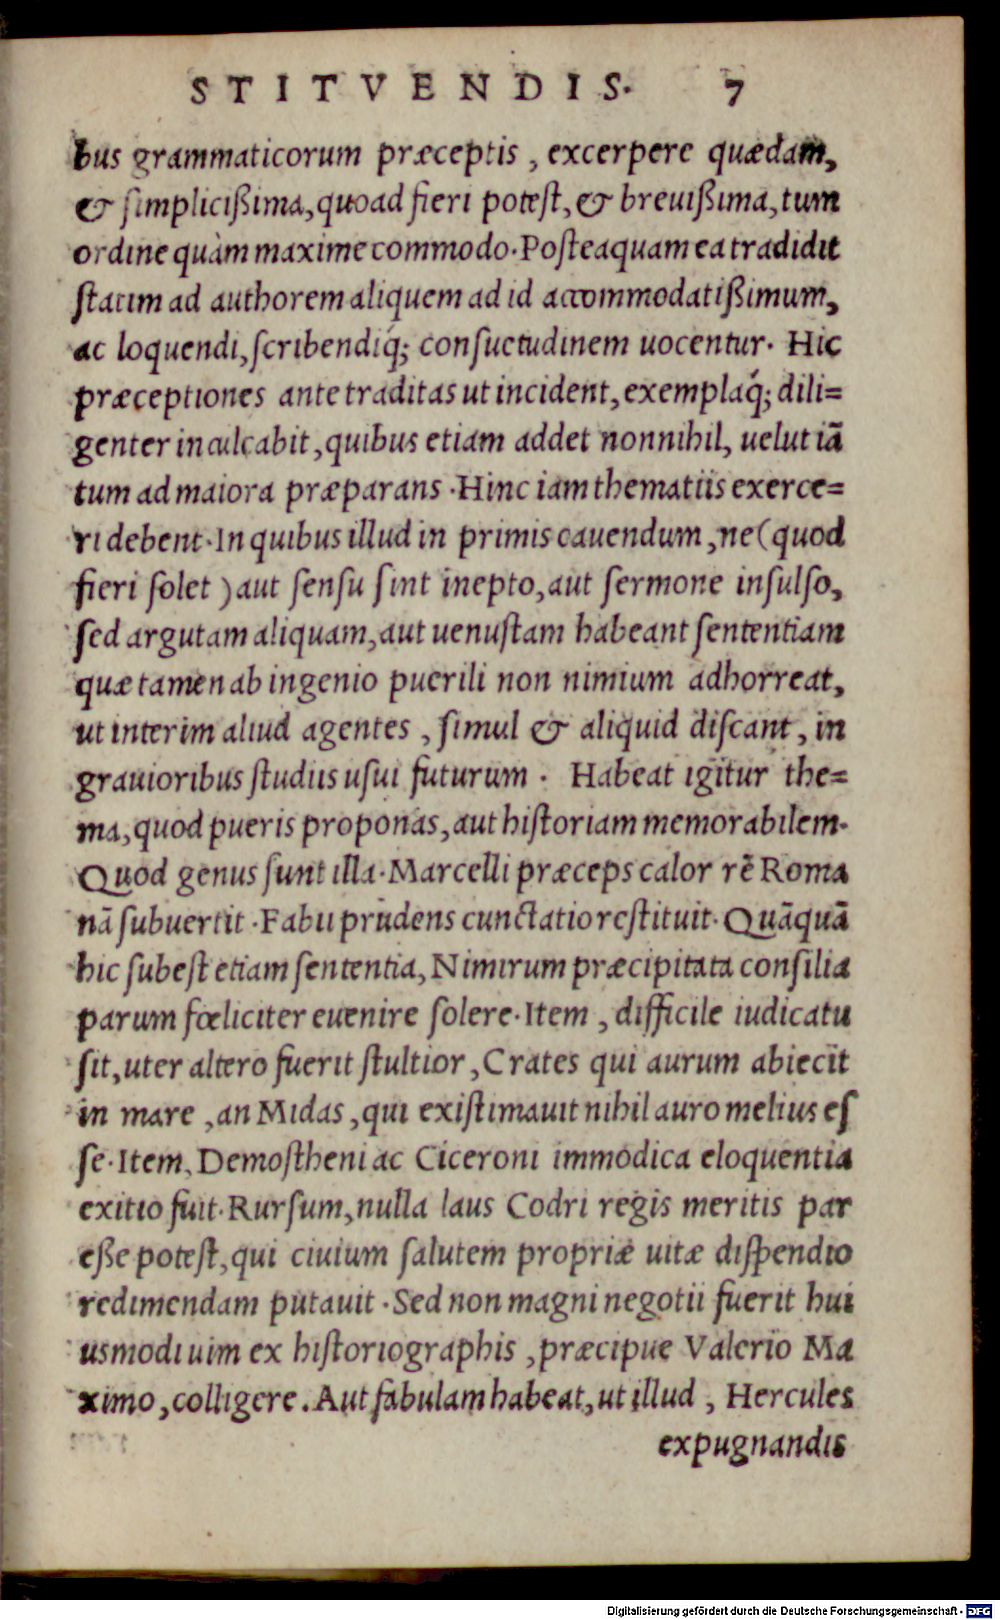 STITVENDIS. 7
bus grammaticorum præceptis, excerpere quædam,
& ſimplicißima, quoad fieri poteſt, & breuißima, tum
ordine quàm maxime commodo. Poſteaquam ea tradidit
ſtatim ad authorem aliquem ad id accommodatißimum,
ac loquendi, ſcribendiq́; conſuetudinem uocentur. Hic
præceptiones ante traditas ut incident, exemplaq́; dili=
genter inculcabit, quibus etiam addet nonnihil, uelut iā
tum ad maiora præparans. Hinc iam thematiis exerce=
ri debent. In quibus illud in primis cauendum, ne (quod
fieri ſolet) aut ſenſu ſint inepto, aut ſermone inſulſo,
ſed argutam aliquam, aut uenuſtam habeant ſententiam
quæ tamen ab ingenio puerili non nimium adhorreat,
ut interim aliud agentes, ſimul & aliquid diſcant, in
grauioribus ſtudiis uſui futurum. Habeat igitur the=
ma, quod pueris proponas, aut hiſtoriam memorabilem.
Quod genus ſunt illa. Marcelli præceps calor rē Roma
nā ſubuertit. Fabii prudens cunctatio reſtituit. Quāquā
hic ſubeſt etiam ſententia, Nimirum præcipitata conſilia
parum fœliciter euenire ſolere. Item, difficile iudicatu
ſit, uter altero fuerit ſtultior, Crates qui aurum abiecit
in mare, an Midas, qui exiſtimauit nihil auro melius eſ
ſe. Item, Demoſtheni ac Ciceroni immodica eloquentia
exitio fuit. Rurſum, nulla laus Codri regis meritis par
eße poteſt, qui ciuium ſalutem propriæ uitæ diſpendio
redimendam putauit. Sed non magni negotii fuerit hui
usmodi uim ex hiſtoriographis, præcipue Valerio Ma
ximo, colligere. Aut fabulam habeat, ut illud, Hercules
expugnandis
Digitalisierung gefördert durch die Deutsche Forschungsgemeinschaft - DFG